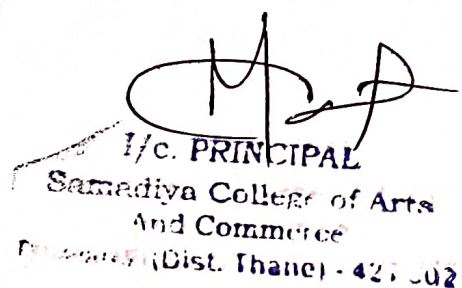 I/c. PRINCIPAL
Samadiya College of Arts
And Commerce
(Dist. Thane) - 421 302